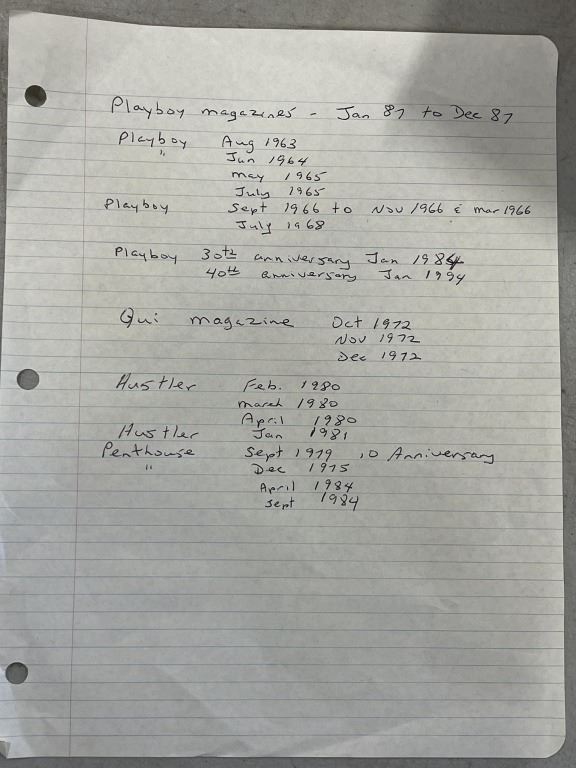 Playboy magazines - Jan 87 to Dec 87
Playboy Aug 1963
" Jun 1964
may 1965
July 1965
Playboy Sept 1966 to Nov 1966 & mar 1966
July 1968
Playboy 30th anniversary Jan 1984
40th anniversary Jan 1994
Qui magazine Oct 1972
Nov 1972
Dec 1972
Hustler Feb. 1980
march 1980
April 1980
Hustler Jan 1981
Penthouse Sept 1979 10 Anniversary
" Dec 1975
April 1984
Sept 1984